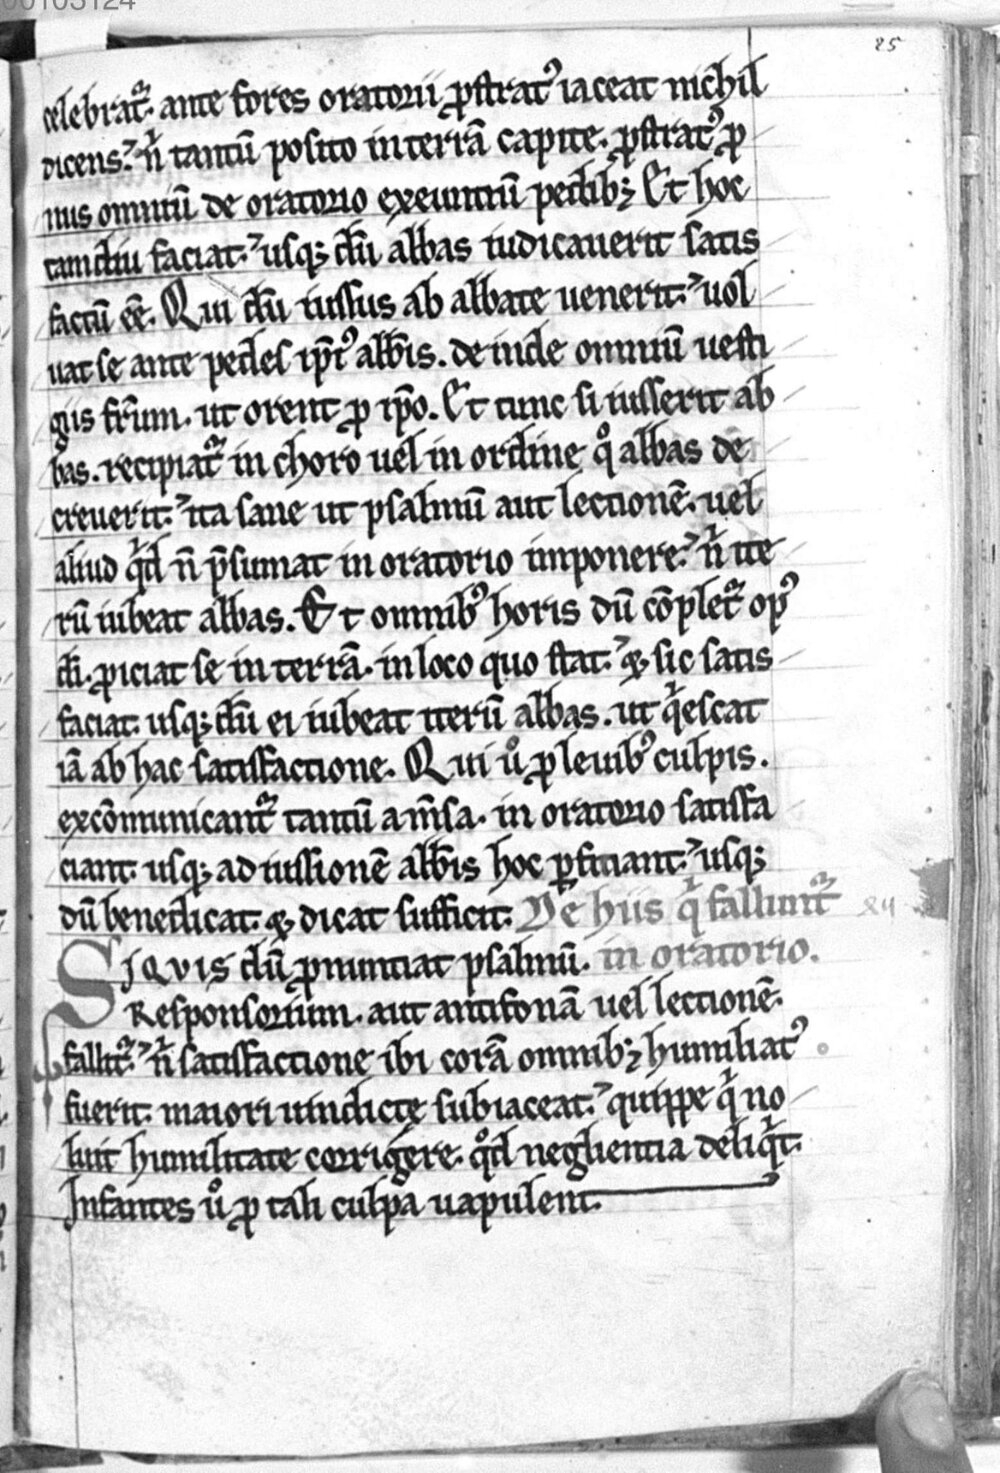 00103124
25
celebrat᷑. ante fores oratorii ꝓstratꝰ iaceat nichil
dicens. n̄ tantū posito in terrā capite. ꝓstratꝰ ꝓ
nus omniū de oratorio exeuntiū pedibꝫ Et hoc
tamdiu faciat. usqꝫ dū abbas iudicauerit satis
factū eē. Qui dū iussus ab abbate uenerit. uol
uat se ante pedes ip̄iꝰ abb̄is. de inde omniū uesti
giis fr̄um. ut orent ꝓ ip̄o. Et tunc si iusserit ab
bas. recipiat᷑ in choro uel in ordine qͦ abbas de
creuerit. ita sane ut psalmū aut lectionē. uel
aliud qͥd n̄ p̄sumat in oratorio imponere. nͥ ite
rū iubeat abbas. Et omnibꝰ horis dū cōplet᷑ opꝰ
di. ꝓiciat se in terrā. in loco quo stat. & sic satis
faciat. usqꝫ dū ei iubeat iterū abbas. ut qͥescat
iā ab hac satisfactione. Qui uͦ ꝓ leuibꝰ culpis.
excōmunicant᷑ tantū a m̄sa. in oratorio satisfa
ciant. usqꝫ ad iussionē abb̄is hoc ꝑficiant. usqꝫ
dū benedicat. & dicat sufficit. De hiis qͥ fallunt᷑
SIQVIS dū ꝓnuntiat psalmū. in oratorio.
Responsorium. aut antifonā uel lectionē.
fallit᷑. nͥ satisfactione ibi corā omnibꝫ humiliatꝰ
fuerit. maiori uindictę subiaceat. quippe qͥ no
luit humilitate corrigere. qͦd neglientia deliqͥt.
Infantes uͦ ꝓ tali culpa uapulent.